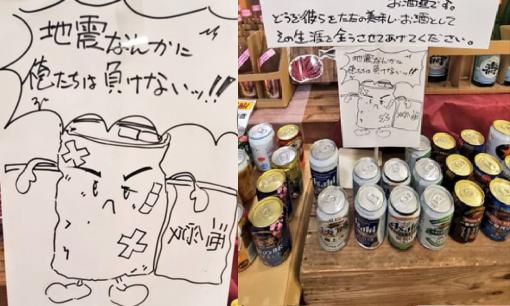 地震なんかに
俺たちは負けないッ!!
お酒達です。
どうぞ彼らをただの美味しいお酒として
その生涯を全うさせてあげてください。
地震なんかに
俺たちは負けないッ!!
Asahi
Asahi